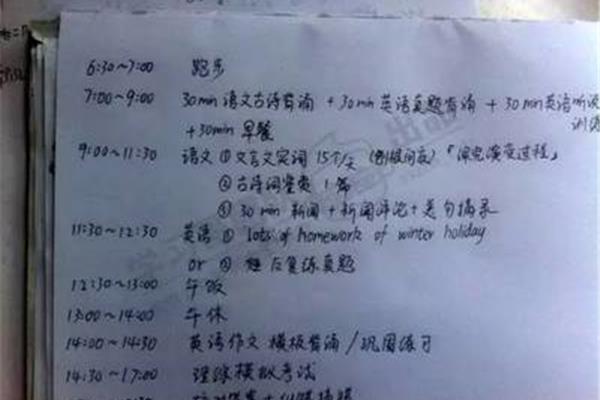 6:30~7:00 跑步
7:00~9:00 30min语文古诗背诵 + 30min英语真题背诵 + 30min英语听说训练
+30min 早餐
9:00~11:30 语文 ① 文言文实词 15个/天 「词义演变过程」
② 古诗词鉴赏 1篇
③ 30 min 新闻 + 新闻评论 + 美句摘录
11:30~12:30 英语 ① lots of homework of winter holiday
or ② 复练真题
12:30~13:00 午饭
13:00~14:00 午休
14:00~14:30 英语作文 模板背诵 / 巩固练习
14:30~17:00 理综模拟考试